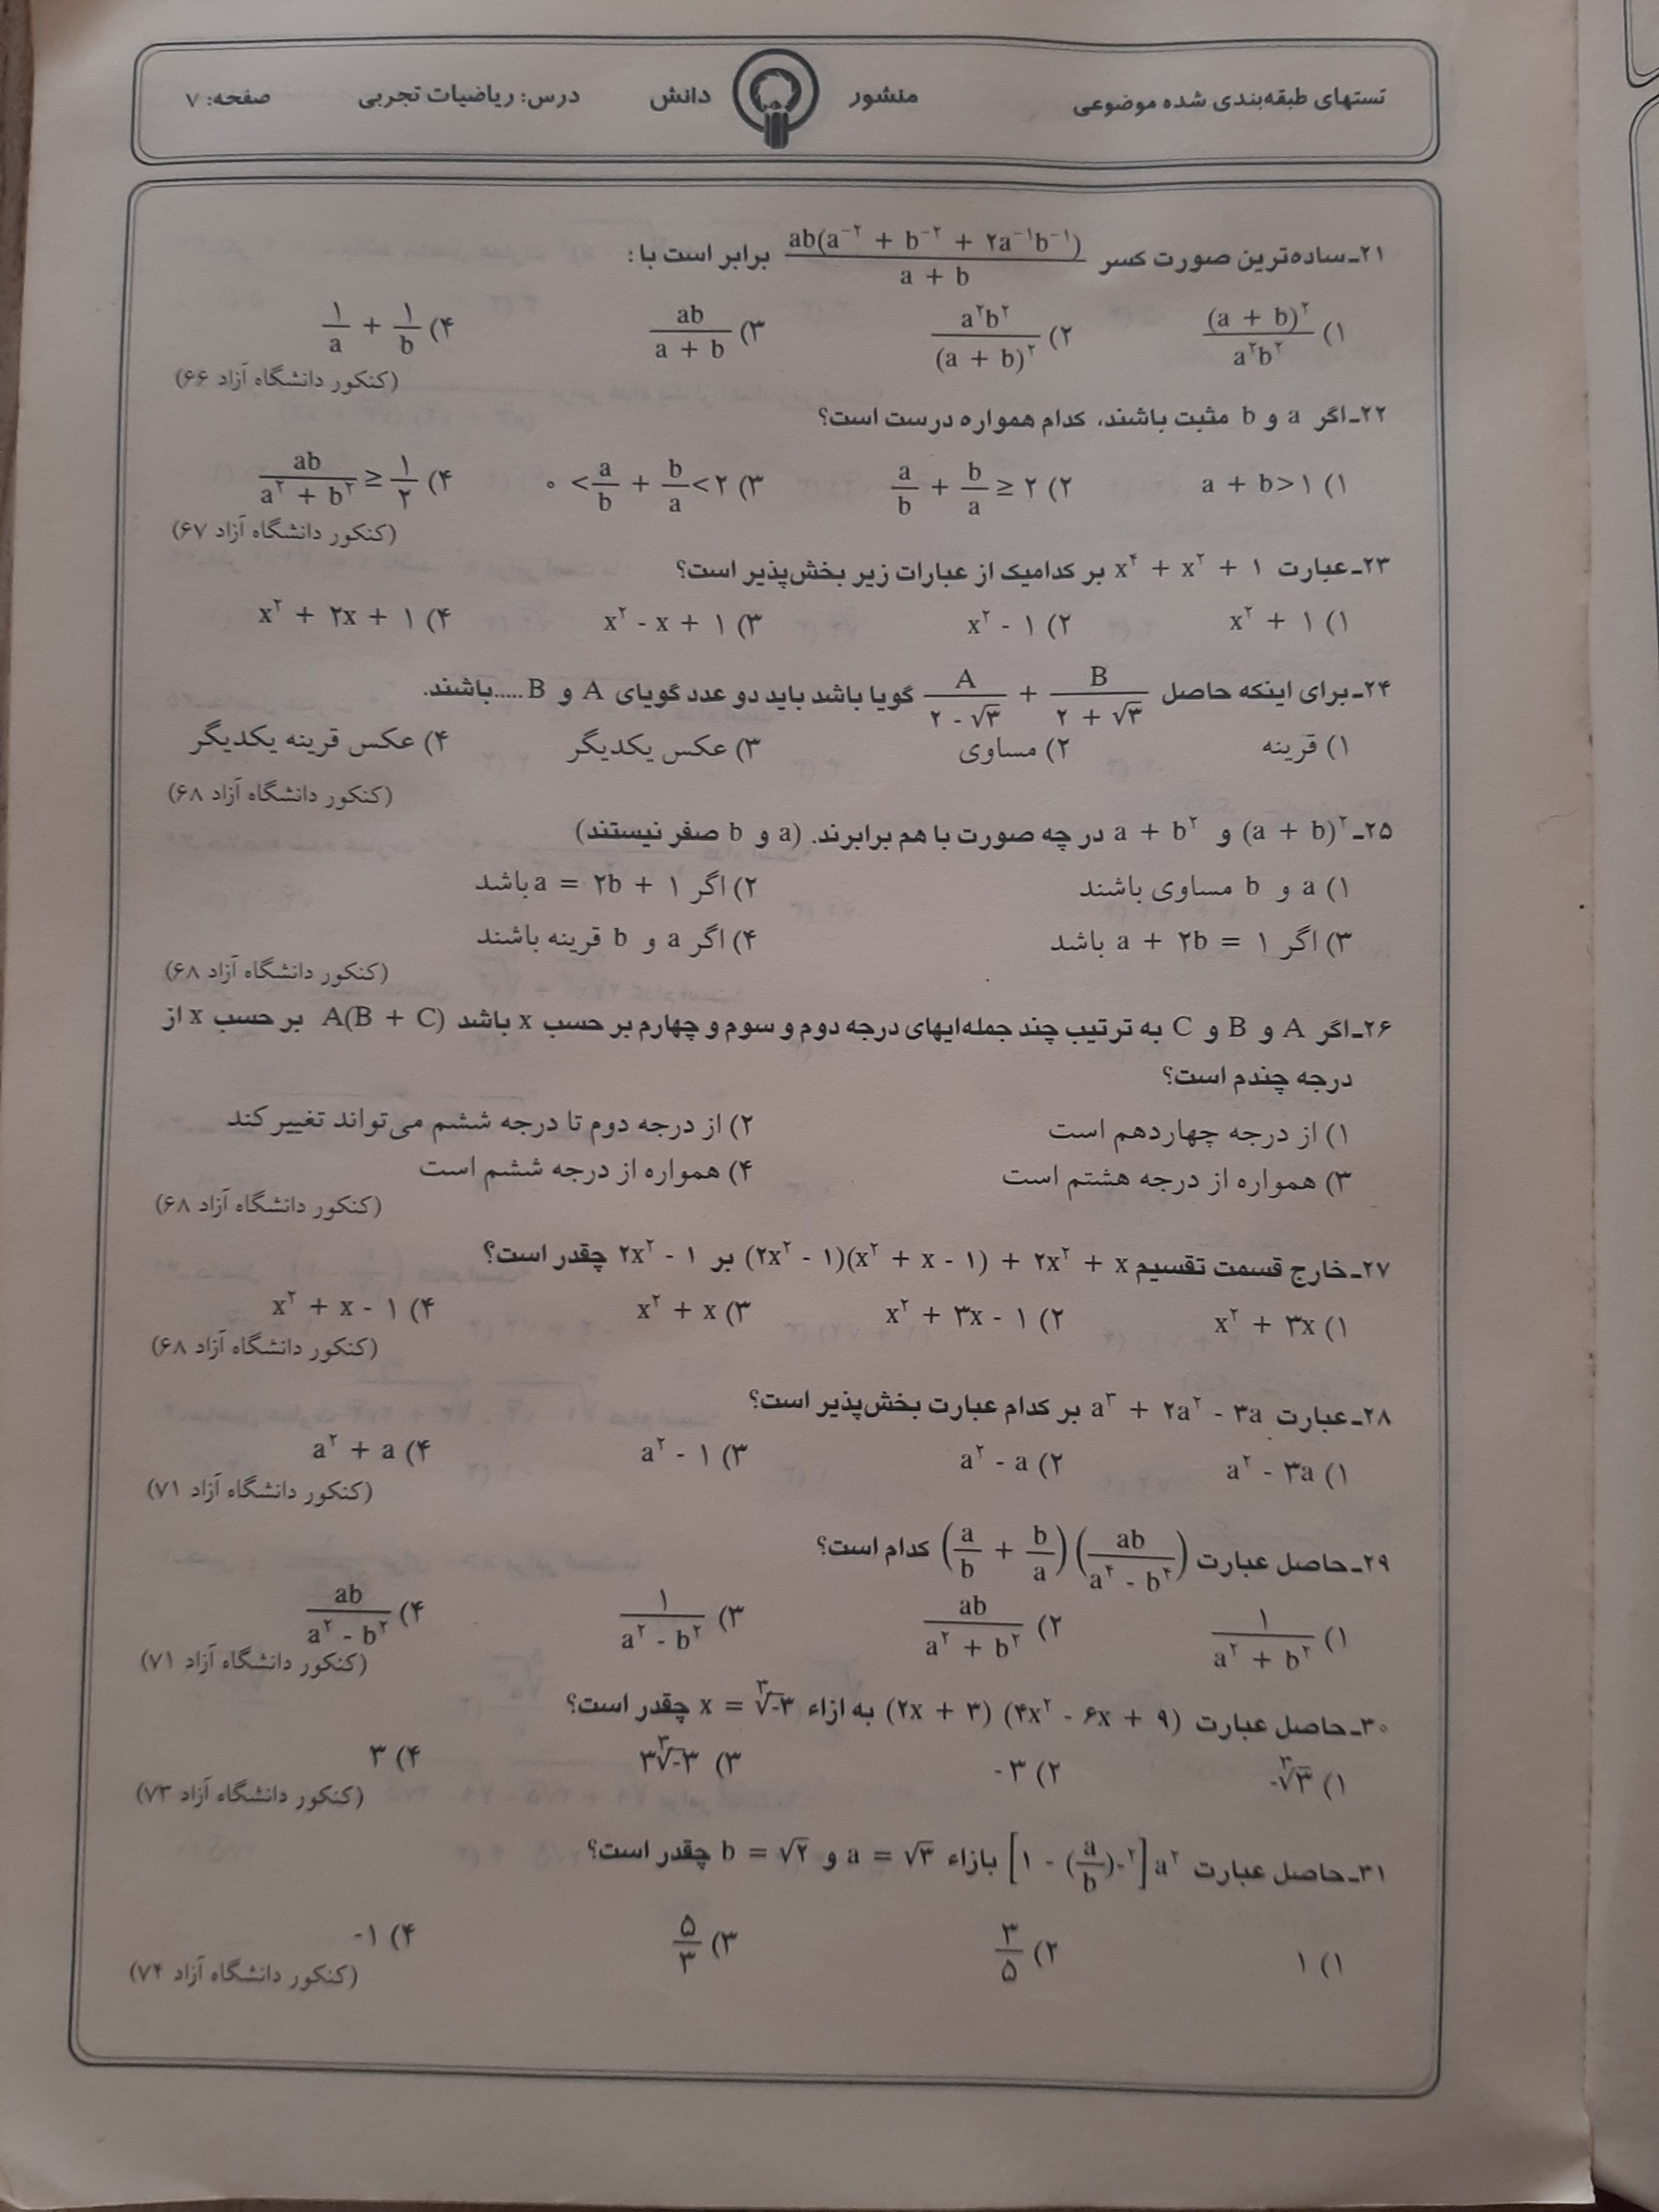 تستهای طبقه‌بندی شده موضوعی منشور دانش درس: ریاضیات تجربی صفحه: ۷
۲۱ـ ساده‌ترین صورت کسر \frac{ab(a^{-۲} + b^{-۲} + ۲a^{-۱}b^{-۱})}{a + b} برابر است با :
۱) \frac{(a + b)^۲}{a^۲b^۲} ۲) \frac{a^۲b^۲}{(a + b)^۲} ۳) \frac{ab}{a + b} ۴) \frac{۱}{a} + \frac{۱}{b}
(کنکور دانشگاه آزاد ۶۶)
۲۲ـ اگر a و b مثبت باشند، کدام همواره درست است؟
۱) a + b > ۱ ۲) \frac{a}{b} + \frac{b}{a} ≥ ۲ ۳) ۰ < \frac{a}{b} + \frac{b}{a} < ۲ ۴) \frac{ab}{a^۲ + b^۲} ≥ \frac{۱}{۲}
(کنکور دانشگاه آزاد ۶۷)
۲۳ـ عبارت x^۴ + x^۲ + ۱ بر کدامیک از عبارات زیر بخش‌پذیر است؟
۱) x^۲ + ۱ ۲) x^۲ - ۱ ۳) x^۲ - x + ۱ ۴) x^۲ + ۲x + ۱
۲۴ـ برای اینکه حاصل \frac{A}{۲ - √۳} + \frac{B}{۲ + √۳} گویا باشد باید دو عدد گویای A و B ..... باشند.
۱) قرینه ۲) مساوی ۳) عکس یکدیگر ۴) عکس قرینه یکدیگر
(کنکور دانشگاه آزاد ۶۸)
۲۵ـ (a + b)^۲ و a + b^۲ در چه صورت با هم برابرند. (a و b صفر نیستند)
۱) a و b مساوی باشند ۲) اگر a = ۲b + ۱ باشد
۳) اگر a + ۲b = ۱ باشد ۴) اگر a و b قرینه باشند
(کنکور دانشگاه آزاد ۶۸)
۲۶ـ اگر A و B و C به ترتیب چند جمله‌ایهای درجه دوم و سوم و چهارم بر حسب x باشد A(B + C) بر حسب x از
درجه چندم است؟
۱) از درجه چهاردهم است ۲) از درجه دوم تا درجه ششم می‌تواند تغییر کند
۳) همواره از درجه هشتم است ۴) همواره از درجه ششم است
(کنکور دانشگاه آزاد ۶۸)
۲۷ـ خارج قسمت تقسیم (۲x^۲ - ۱)(x^۲ + x - ۱) + ۲x^۲ + x بر ۲x^۲ - ۱ چقدر است؟
۱) x^۲ + ۳x ۲) x^۲ + ۳x - ۱ ۳) x^۲ + x ۴) x^۲ + x - ۱
(کنکور دانشگاه آزاد ۶۸)
۲۸ـ عبارت a^۳ + ۲a^۲ - ۳a بر کدام عبارت بخش‌پذیر است؟
۱) a^۲ - ۳a ۲) a^۲ - a ۳) a^۲ - ۱ ۴) a^۲ + a
(کنکور دانشگاه آزاد ۷۱)
۲۹ـ حاصل عبارت (\frac{a}{b} + \frac{b}{a})(\frac{ab}{a^۴ - b^۴}) کدام است؟
۱) \frac{۱}{a^۲ + b^۲} ۲) \frac{ab}{a^۲ + b^۲} ۳) \frac{۱}{a^۲ - b^۲} ۴) \frac{ab}{a^۲ - b^۲}
(کنکور دانشگاه آزاد ۷۱)
۳۰ـ حاصل عبارت (۲x + ۳) (۴x^۲ - ۶x + ۹) به ازاء x = ∛-۳ چقدر است؟
۱) -∛۳ ۲) -۳ ۳) ۳∛-۳ ۴) ۳
(کنکور دانشگاه آزاد ۷۳)
۳۱ـ حاصل عبارت [۱ - (\frac{a}{b})^{-۲}] a^۲ بازاء a = √۳ و b = √۲ چقدر است؟
۱) ۱ ۲) \frac{۳}{۵} ۳) \frac{۵}{۳} ۴) -۱
(کنکور دانشگاه آزاد ۷۴)